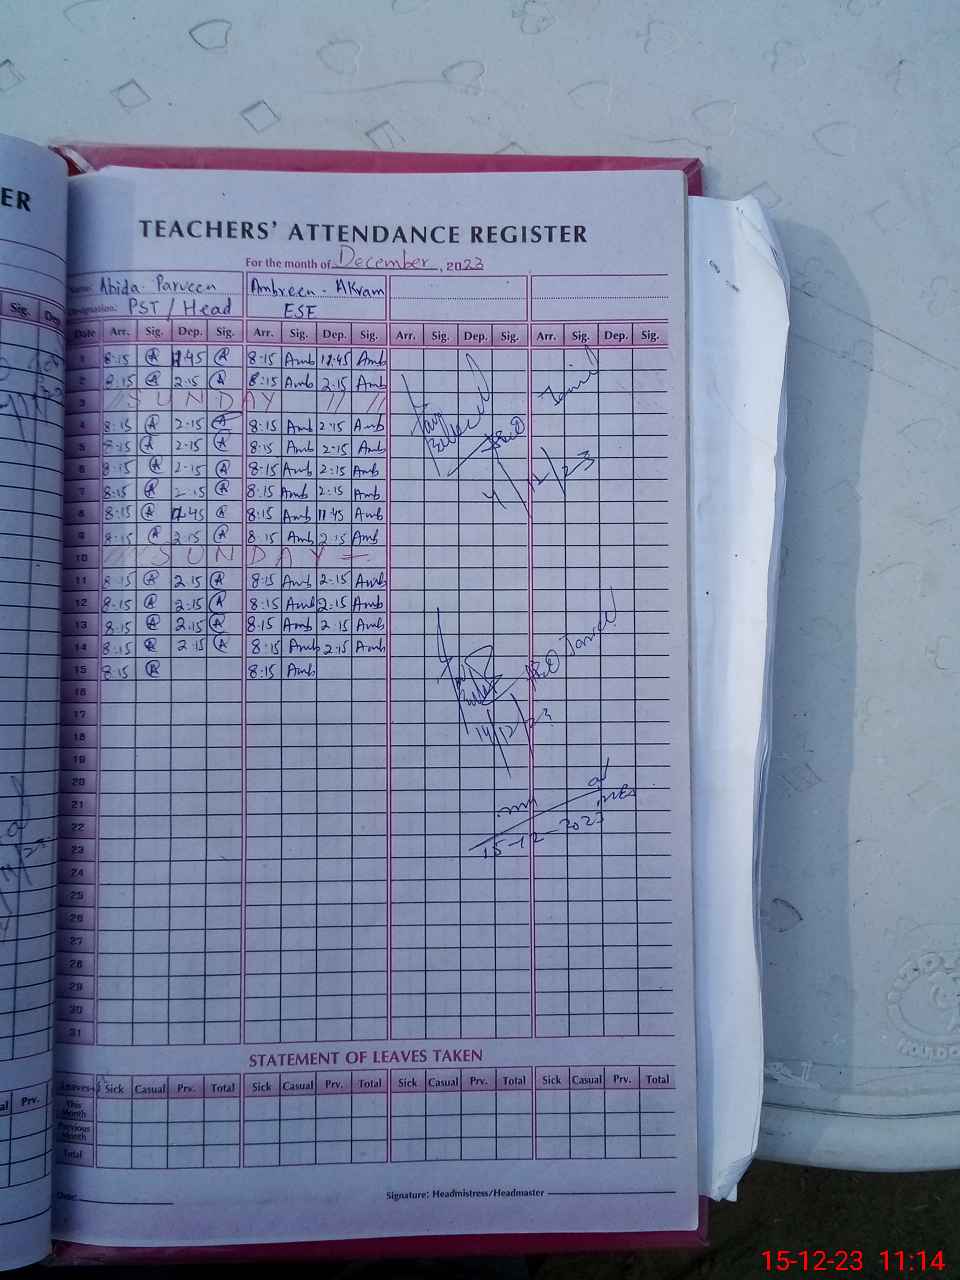 ER
Sig. Dep
TEACHERS' ATTENDANCE REGISTER
For the month of December, 2023
Name: Abida Parveen Ambreen - Akram
Designation: PST / Head ESE
Date Arr. Sig. Dep. Sig. Arr. Sig. Dep. Sig. Arr. Sig. Dep. Sig. Arr. Sig. Dep. Sig.
1 8:15 A 11:45 A 8:15 Amb 11:45 Amb
2 8:15 A 2:15 A 8:15 Amb 2:15 Amb
3 SUNDAY
4 8:15 A 2:15 A 8:15 Amb 2:15 Amb
5 8:15 A 2:15 A 8:15 Amb 2:15 Amb
6 8:15 A 2:15 A 8:15 Amb 2:15 Amb
7 8:15 A 2:15 A 8:15 Amb 2:15 Amb
4/12/23
8 8:15 A 11:45 A 8:15 Amb 11:45 Amb
9 8:15 A 2:15 A 8:15 Amb 2:15 Amb
10 SUNDAY
11 8:15 A 2:15 A 8:15 Amb 2:15 Amb
12 8:15 A 2:15 A 8:15 Amb 2:15 Amb
13 8:15 A 2:15 A 8:15 Amb 2:15 Amb
14 8:15 A 2:15 A 8:15 Amb 2:15 Amb
15 8:15 A 8:15 Amb
16
17
14/12/23
18
19
20
21
22
23
15-12-2023
24
25
26
27
28
29
30
31
STATEMENT OF LEAVES TAKEN
Leaves Sick Casual Prv. Total Sick Casual Prv. Total Sick Casual Prv. Total Sick Casual Prv. Total
This Month
Previous Month
Total
al Prv.
Date:
Signature: Headmistress/Headmaster
15-12-23 11:14